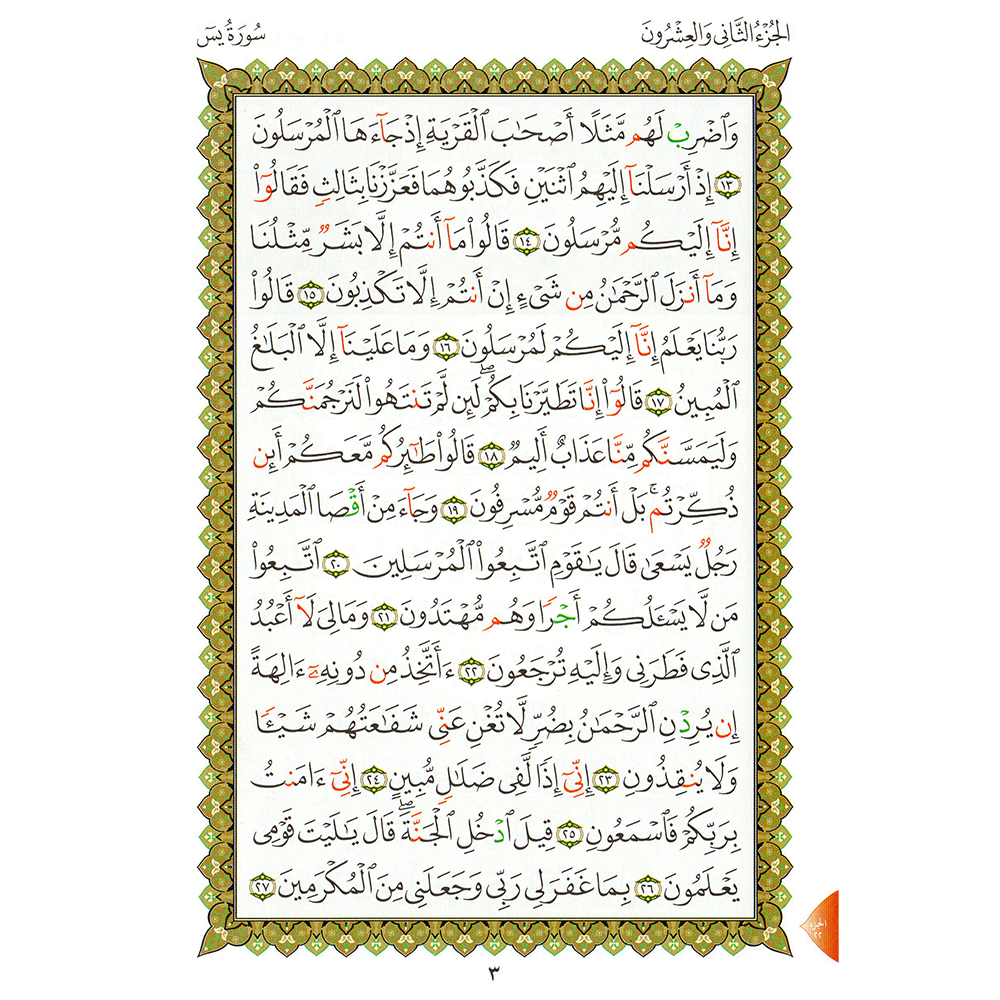 الجُزْءُ الثَّانِى وَالعِشْرُونَ
سُورَةُ يسٓ
وَٱضْرِبْ لَهُم مَّثَلًا أَصْحَٰبَ ٱلْقَرْيَةِ إِذْ جَآءَهَا ٱلْمُرْسَلُونَ
١٣ إِذْ أَرْسَلْنَآ إِلَيْهِمُ ٱثْنَيْنِ فَكَذَّبُوهُمَا فَعَزَّزْنَا بِثَالِثٍ فَقَالُوٓا۟
إِنَّآ إِلَيْكُم مُّرْسَلُونَ ١٤ قَالُوا۟ مَآ أَنتُمْ إِلَّا بَشَرٌ مِّثْلُنَا
وَمَآ أَنزَلَ ٱلرَّحْمَٰنُ مِن شَىْءٍ إِنْ أَنتُمْ إِلَّا تَكْذِبُونَ ١٥ قَالُوا۟
رَبُّنَا يَعْلَمُ إِنَّآ إِلَيْكُمْ لَمُرْسَلُونَ ١٦ وَمَا عَلَيْنَآ إِلَّا ٱلْبَلَٰغُ
ٱلْمُبِينُ ١٧ قَالُوٓا۟ إِنَّا تَطَيَّرْنَا بِكُمْ ۖ لَئِن لَّمْ تَنتَهُوا۟ لَنَرْجُمَنَّكُمْ
وَلَيَمَسَّنَّكُم مِّنَّا عَذَابٌ أَلِيمٌ ١٨ قَالُوا۟ طَٰٓئِرُكُم مَّعَكُمْ أَئِن
ذُكِّرْتُم ۚ بَلْ أَنتُمْ قَوْمٌ مُّسْرِفُونَ ١٩ وَجَآءَ مِنْ أَقْصَا ٱلْمَدِينَةِ
رَجُلٌ يَسْعَىٰ قَالَ يَٰقَوْمِ ٱتَّبِعُوا۟ ٱلْمُرْسَلِينَ ٢٠ ٱتَّبِعُوا۟
مَن لَّا يَسْـَٔلُكُمْ أَجْرًا وَهُم مُّهْتَدُونَ ٢١ وَمَا لِىَ لَآ أَعْبُدُ
ٱلَّذِى فَطَرَنِى وَإِلَيْهِ تُرْجَعُونَ ٢٢ ءَأَتَّخِذُ مِن دُونِهِۦٓ ءَالِهَةً
إِن يُرِدْنِ ٱلرَّحْمَٰنُ بِضُرٍّ لَّا تُغْنِ عَنِّى شَفَٰعَتُهُمْ شَيْـًٔا
وَلَا يُنقِذُونِ ٢٣ إِنِّىٓ إِذًا لَّفِى ضَلَٰلٍ مُّبِينٍ ٢٤ إِنِّىٓ ءَامَنتُ
بِرَبِّكُمْ فَٱسْمَعُونِ ٢٥ قِيلَ ٱدْخُلِ ٱلْجَنَّةَ ۖ قَالَ يَٰلَيْتَ قَوْمِى
يَعْلَمُونَ ٢٦ بِمَا غَفَرَ لِى رَبِّى وَجَعَلَنِى مِنَ ٱلْمُكْرَمِينَ ٢٧
الجزء
٢٢
٣